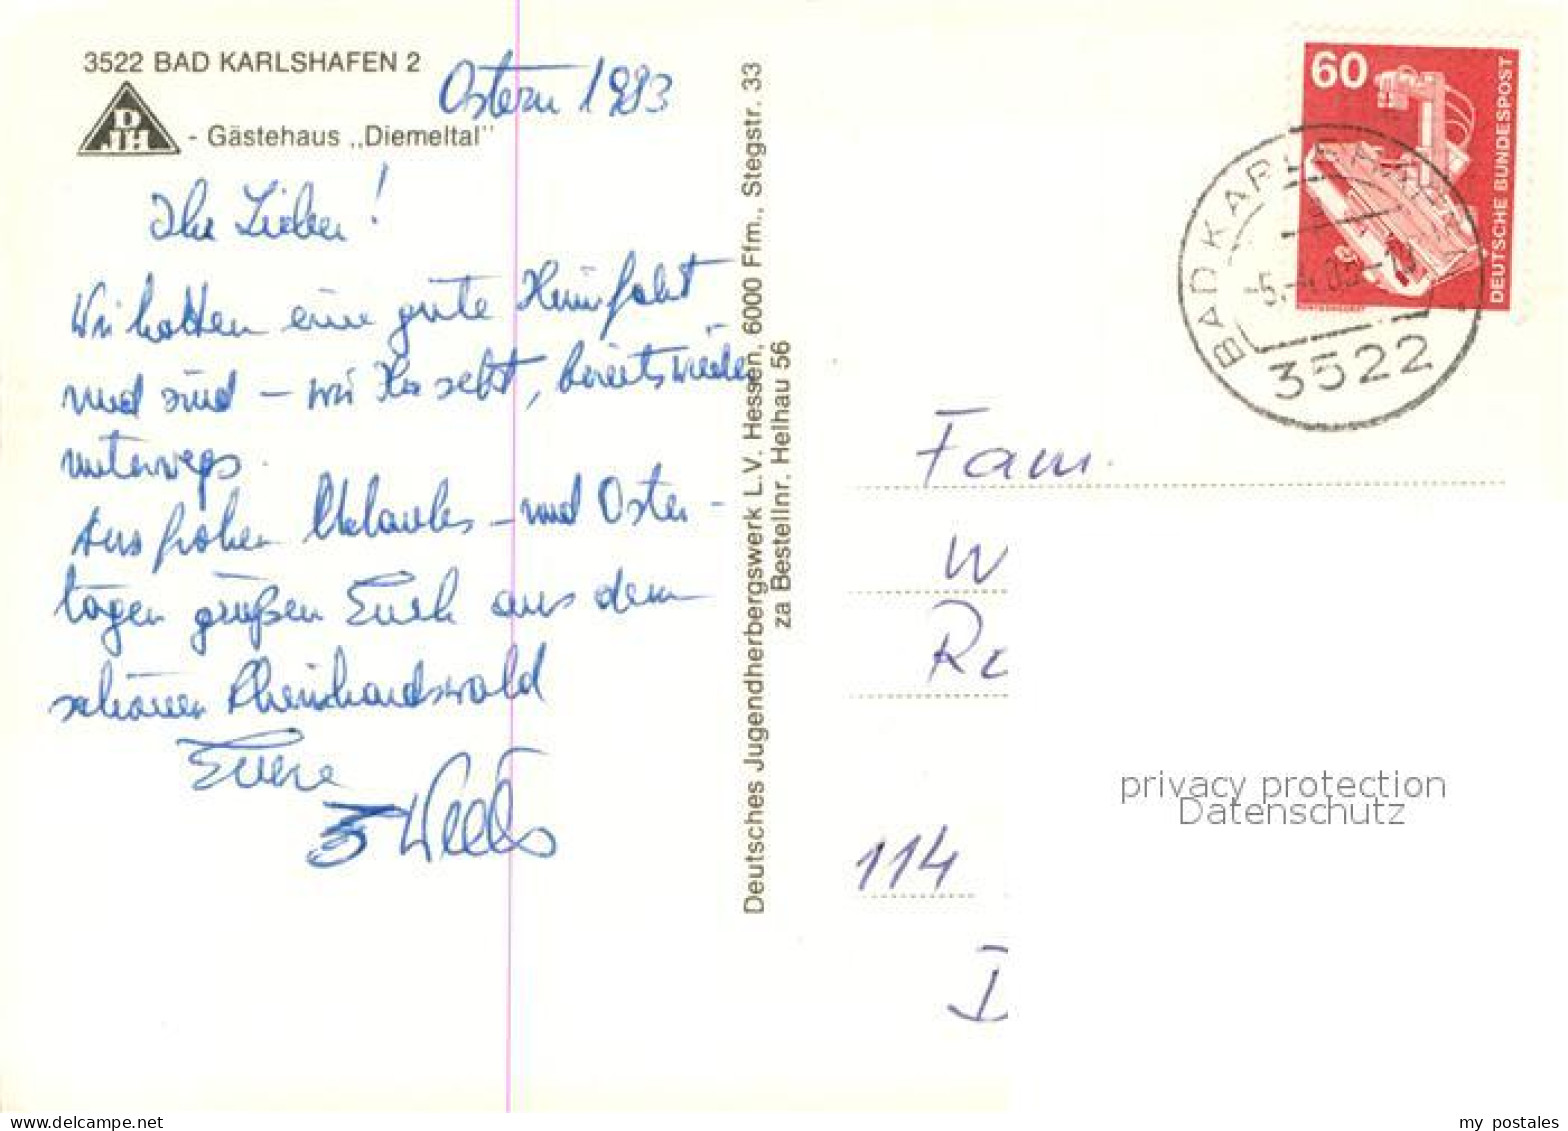 3522 BAD KARLSHAFEN 2
Ostern 1983
DJH - Gästehaus „Diemeltal"
Ihr Lieben!
Wir hatten eine gute Heimfahrt
und sind – wie Ihr seht, bereits wieder
unterwegs.
Aus frohen Urlaubs- und Oster-
tagen grüßen Euch aus dem
schönen Rheinhardswald
Eure
Deutsches Jugendherbergswerk L.V. Hessen, 6000 Ffm., Stegstr. 33
za Bestellnr. Helhau 56
60
DEUTSCHE BUNDESPOST
BAD KARLSHAFEN
3522
Fam.
W
Re
114
I
privacy protection
Datenschutz
my postales